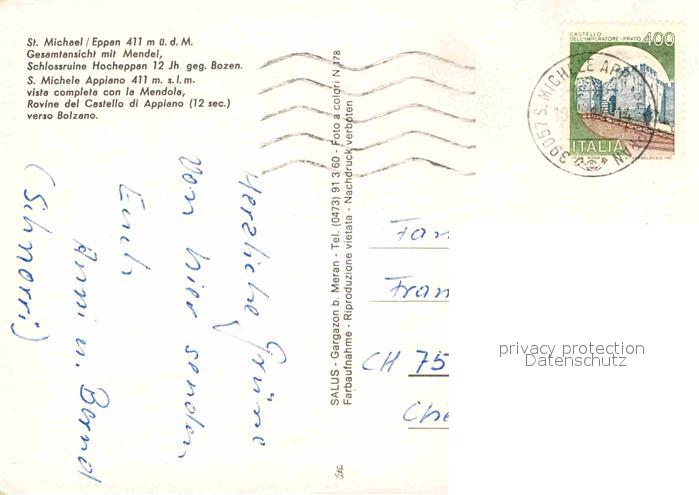 St. Michael / Eppan 411 m ü. d. M.
Gesamtansicht mit Mendel,
Schlossruine Hocheppan 12 Jh geg. Bozen.
S. Michele Appiano 411 m. s. l. m.
vista completa con la Mendola,
Rovine del Castello di Appiano (12 sec.)
verso Bolzano.
Herzliche Grüsse
von hier senden
Euch
Anni u. Bernd
(Schmorri)
SALUS - Gargazon b. Meran - Tel. (0473) 91 3 60 - Foto a colori N. 178
Farbaufnahme - Riproduzione vietata - Nachdruck verboten
CASTELLO
DELL'IMPERATORE - PRATO
400
ITALIA
39057 S. MICHELE APP
Fam
Fran
CH 75
Che
privacy protection
Datenschutz